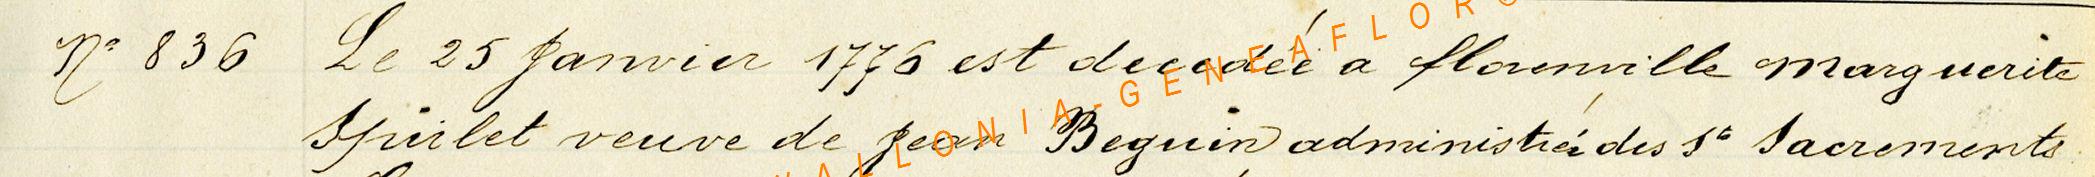 Nº 836 Le 25 Janvier 1776 est decedéé a florenville Marguerite
Spirlet veuve de Jean Beguin administréé des Sts Sacrements
WALLONIA-GENEAFLOR